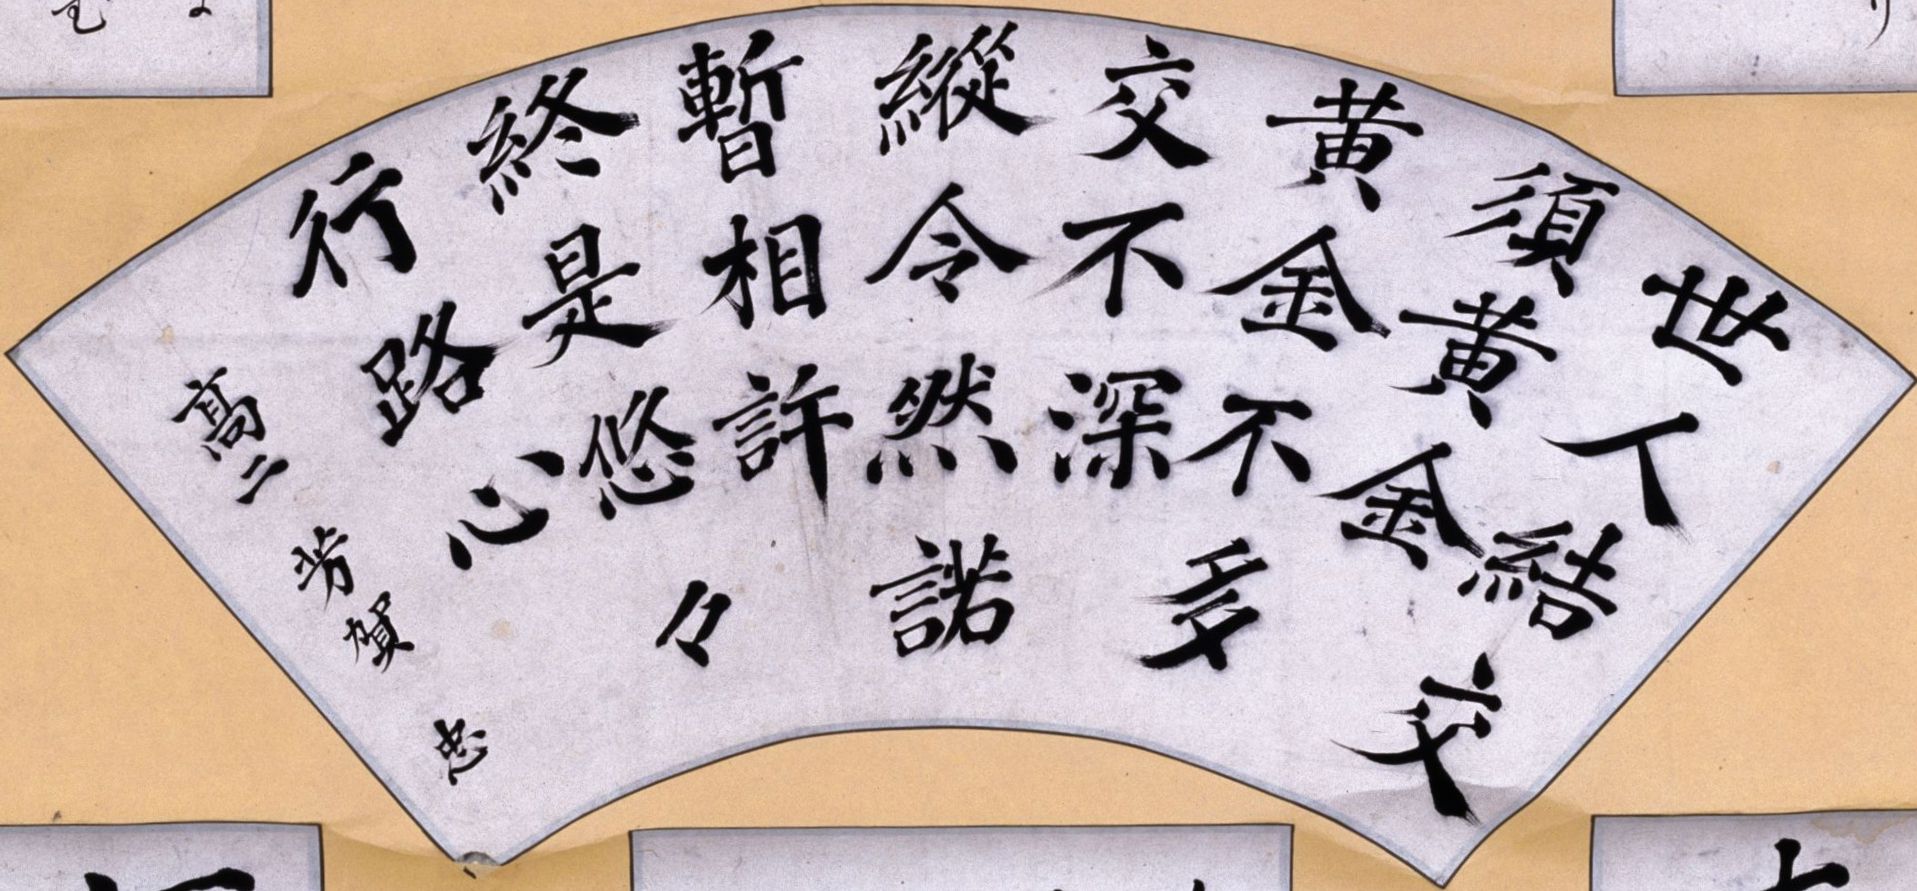 世人結交
須黄金
黄金不多
交不深
縦令然諾
暫相許
終是悠々
行路心
高二 芳賀 忠